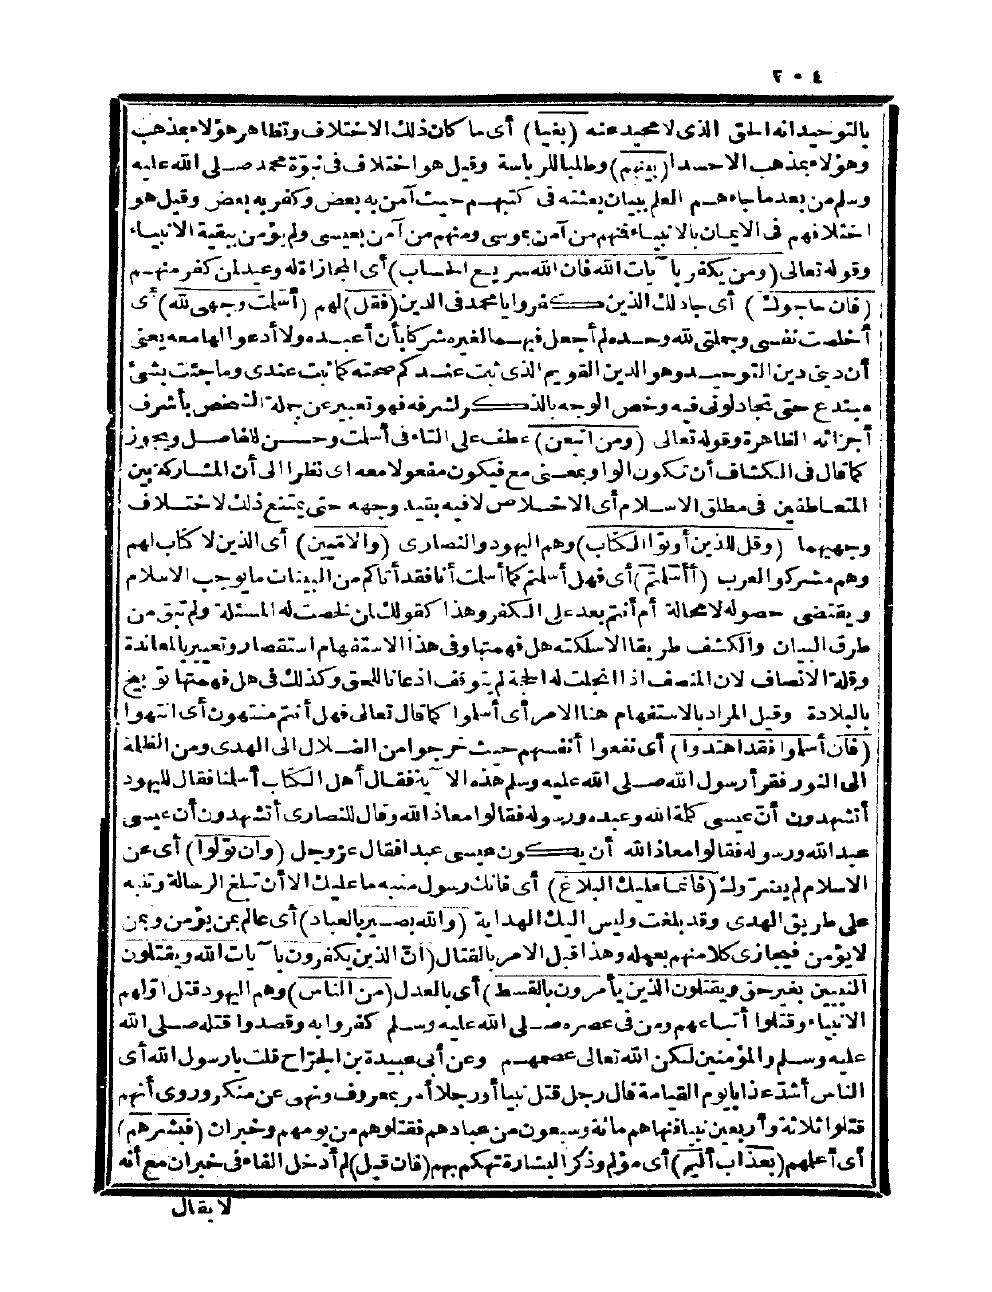 ٢٠٤
بالتوحيد انه الحق الذى لا محيد عنه (بغيا) أى ما كان ذلك الاختلاف وتظاهر هؤلاء بمذهب
وهؤلاء بمذهب الاحسدا (بينهم) وطلبا للرياسة وقيل هو اختلاف فى نبوّة محمد صلى الله عليه
وسلم من بعد ما جاءهم العلم ببيان بعثته فى كتبهم حيث آمن به بعض وكفر به بعض وقيل هو
اختلافهم فى الايمان بالانبياء فنهم من آمن بموسى ومنهم من آمن بعيسى ولم يؤمن ببقية الانبياء
وقوله تعالى (ومن يكفر بآيات الله فان الله سريع الحساب) أى المجازاة له وعيد لمن كفر منهم
(فان حاجوك) أى جادلك الذين كفروا يا محمد فى الدين (فقل) لهم (أسلمت وجهى لله) أى
أخلصت نفسى وجملتى لله وحده لم أجعل فيهما لغيره شركا بأن أعبده ولا أدعو الها معه يعنى
أن دينى دين التوحيد وهو الدين القويم الذى ثبت عندكم صحته كما ثبت عندى وما جئت بشئ
مبتدع حتى تجادلونى فيه وخص الوجه بالذكر لشرفه فهو تعبير عن جملة الشخص بأشرف
أجزائه الظاهرة وقوله تعالى (ومن اتبعن) عطف على التاء فى أسلمت وحسن للفاصل ويجوز
كما قال فى الكشاف أن تكون الواو بمعنى مع فيكون مفعولا معه اى نظرا الى أن المشاركة بين
المتعاطفين فى مطلق الاسلام أى الاخلاص لا فيه بقيد وجهه حتى يمتنع ذلك لاختلاف
وجهيهما (وقل للذين أوتوا الكتاب) وهم اليهود والنصارى (والامّيين) أى الذين لا كتاب لهم
وهم مشركو العرب (أأسلمتم) أى فهل أسلمتم كما أسلمت أنا فقد أتاكم من البينات ما يوجب الاسلام
ويقتضى حصوله لا محالة أم أنتم بعد على الكفر وهذا كقولك لمن لخصت له المسئلة ولم تبق من
طرق البيان والكشف طريقا الا سلكته هل فهمتها وفى هذا الاستفهام استقصار وتعيير بالمعاندة
وقلة الانصاف لان المنصف اذا انجلت له الحجة لم يتوقف اذعانا للحق وكذلك فى هل فهمتها توبيخ
بالبلادة وقيل المراد بالاستفهام هنا الامر أى أسلموا كما قال تعالى فهل أنتم منتهون أى انتهوا
(فان أسلموا فقد اهتدوا) أى نفعوا أنفسهم حيث خرجوا من الضلال الى الهدى ومن الظلمة
الى النور فقرأ رسول الله صلى الله عليه وسلم هذه الآية فقال أهل الكتاب أسلمنا فقال لليهود
أتشهدون أنّ عيسى كلمة الله وعبده ورسوله فقالوا معاذ الله وقال للنصارى أتشهدون أن عيسى
عبد الله ورسوله فقالوا معاذ الله أن يكون عيسى عبدا فقال عز وجل (وان تولوا) أى عن
الاسلام لم يضرّوك (فانما عليك البلاغ) أى فانك رسول منبه ما عليك الا أن تبلغ الرسالة وتنبه
على طريق الهدى وقد بلغت وليس اليك الهداية (والله بصير بالعباد) أى عالم بمن يؤمن وبمن
لا يؤمن فيجازى كلا منهم بعمله وهذا قبل الامر بالقتال (انّ الذين يكفرون بآيات الله ويقتلون
النبيين بغير حق ويقتلون الذين يأمرون بالقسط) أى بالعدل (من الناس) وهم اليهود قتل أوّلهم
الانبياء وقتلوا أتباعهم ومن فى عصره صلى الله عليه وسلم كفروا به وقصدوا قتله صلى الله
عليه وسلم والمؤمنين لكن الله تعالى عصمهم وعن أبى عبيدة بن الجرّاح قلت يا رسول الله أى
الناس أشدّ عذابا يوم القيامة قال رجل قتل نبيا أو رجلا أمر بمعروف ونهى عن منكر وروى أنهم
قتلوا ثلاثة وأربعين نبيا فنهاهم مائة وسبعون من عبادهم فقتلوهم من يومهم وخبران (فبشرهم)
أى أعلمهم (بعذاب أليم) أى مؤلم وذكر البشارة تهكم بهم (فان قيل) لم أدخل الفاء فى خبران مع أنه
لا يقال